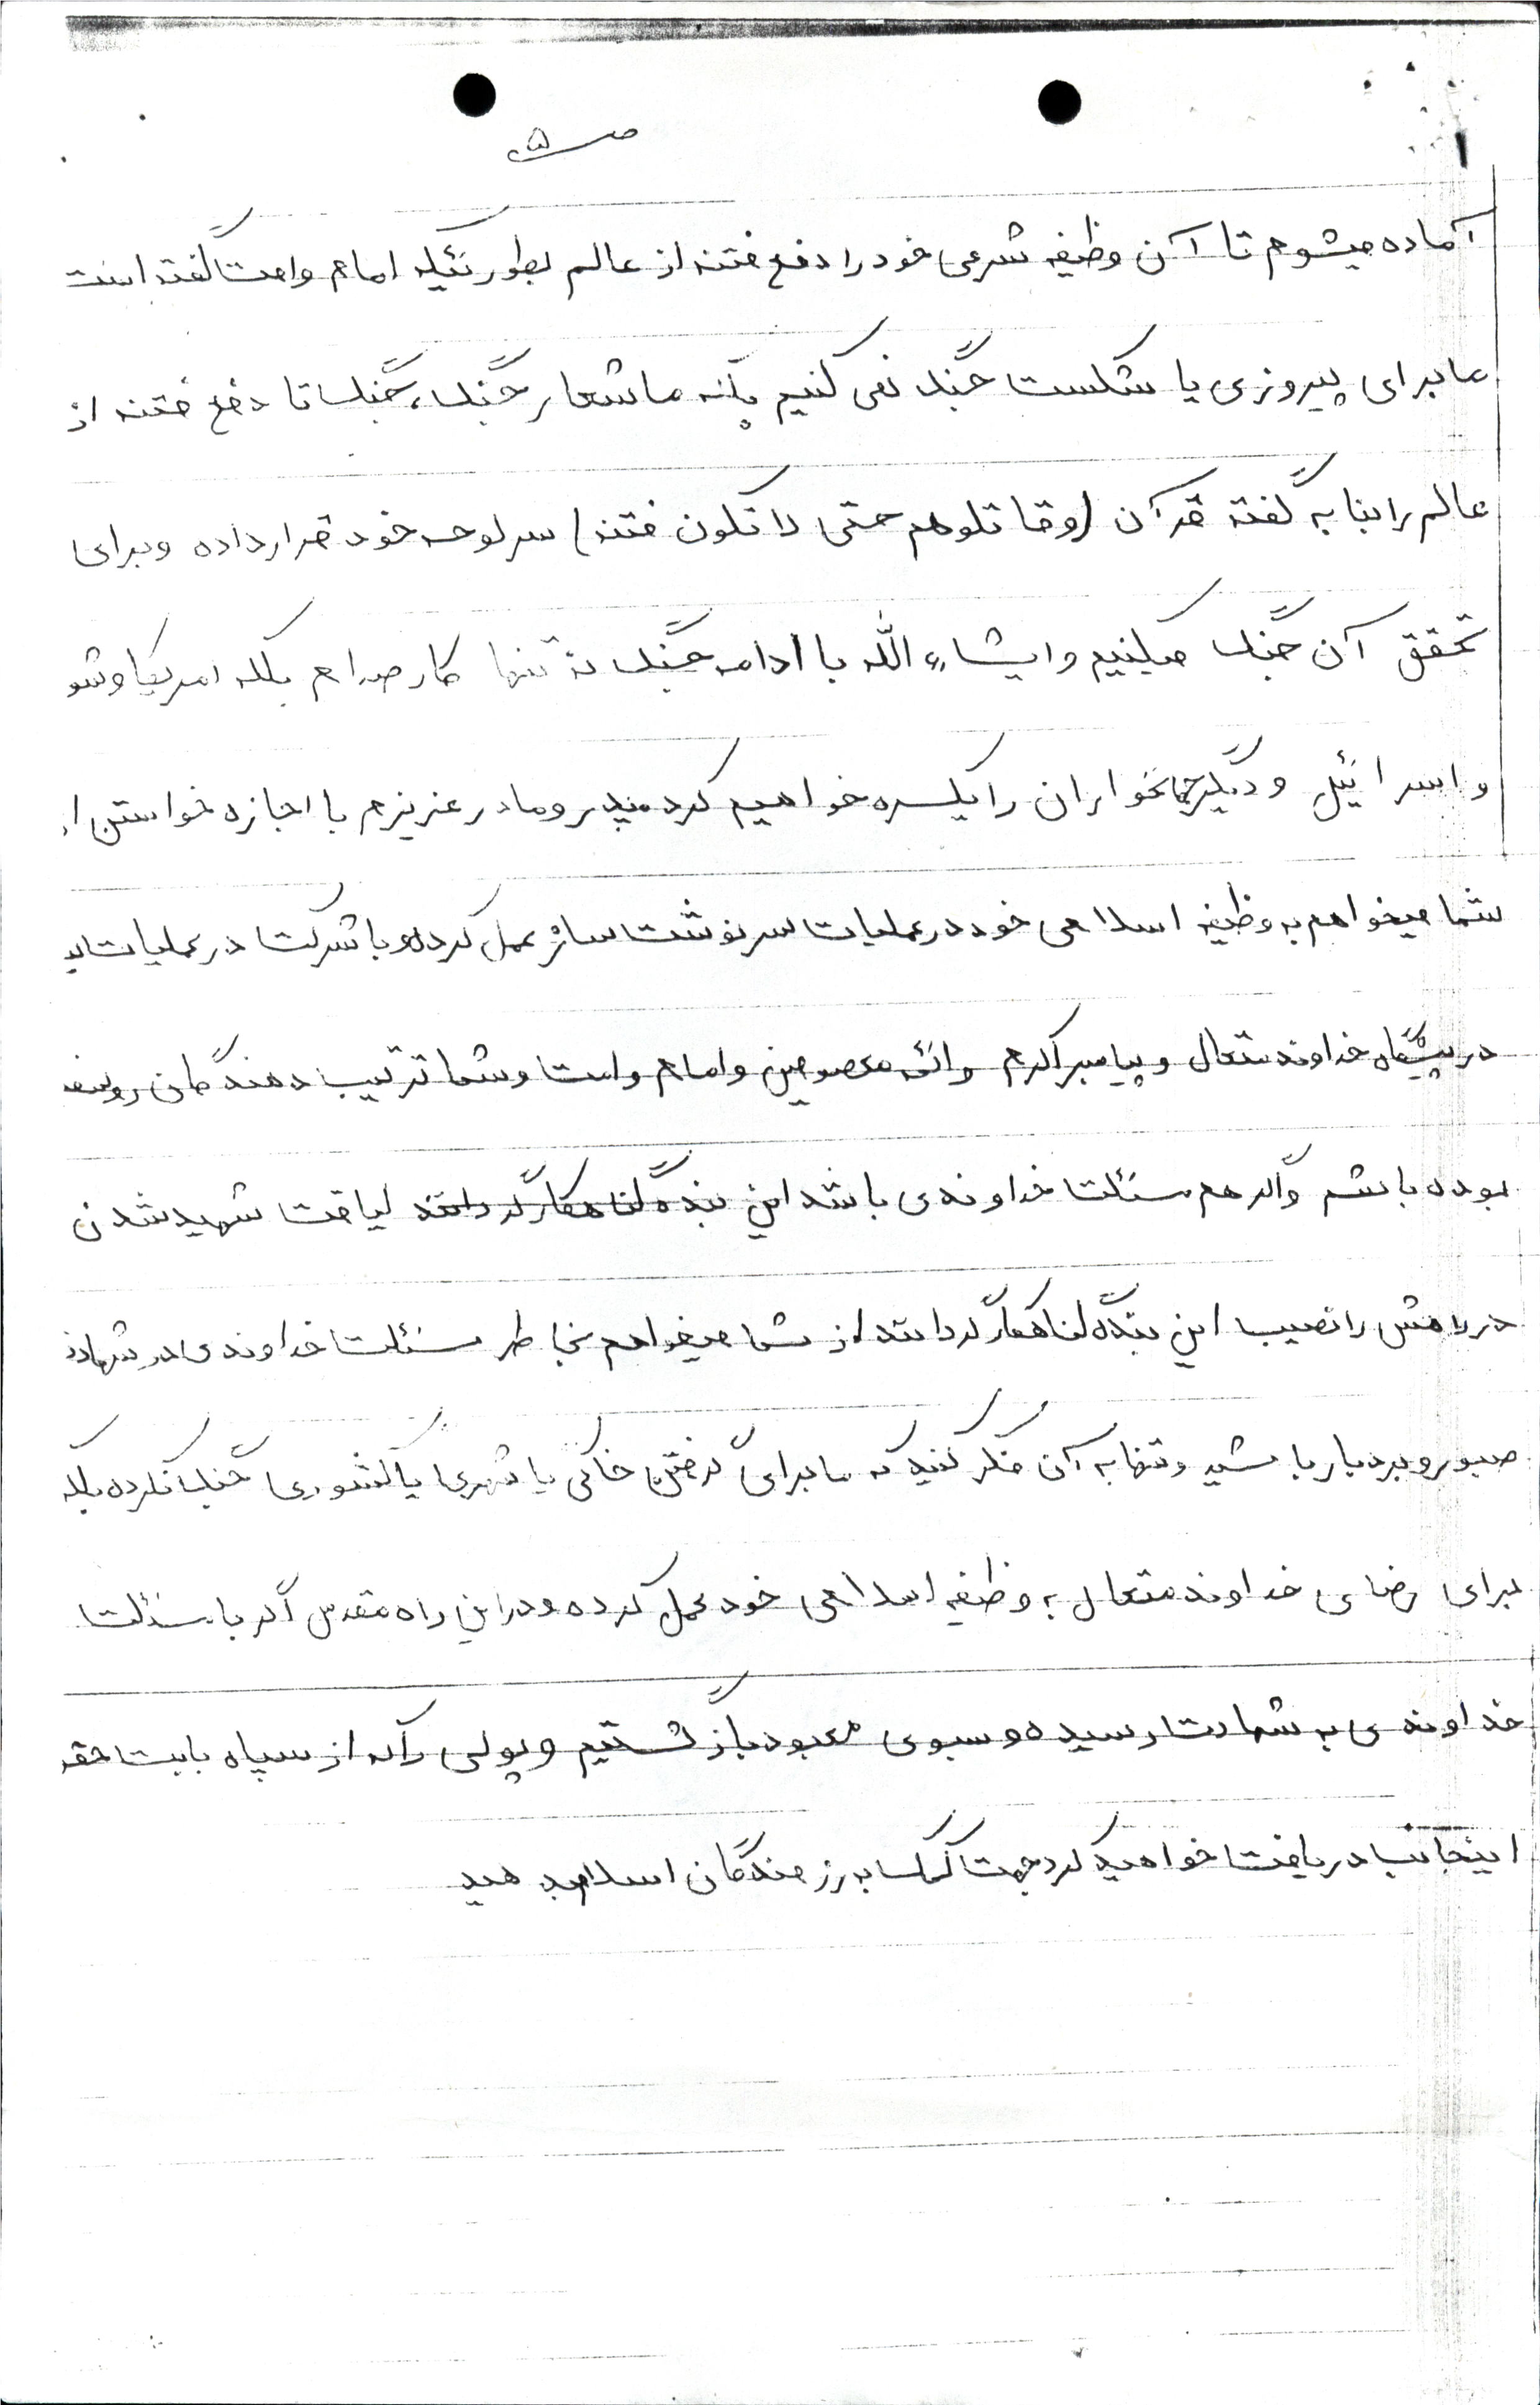 ص ۵
آماده میشوم تا آن وظیفه شرعی خود را دفع فتنه از عالم بطوریکه امام و امت گفته است
ما برای پیروزی یا شکست جنگ نمی کنیم بلکه ما شعار جنگ، جنگ تا دفع فتنه از
عالم را بنا به گفته قرآن (وقاتلوهم حتی لاتکون فتنه) سرلوحه خود قرار داده و برای
تحقق آن جنگ میکنیم و ایشاء الله با ادامه جنگ نه تنها کار صدام بلکه امریکا و شو
و اسرائیل و دیگر جهانخواران را یکسره خواهیم کرد پدر و مادر عزیزم با اجازه خواستن از
شما میخواهم به وظیفه اسلامی خود در عملیات سرنوشت ساز عمل کرده و با شرکت در عملیات
در پیشگاه خداوند متعال و پیامبر اکرم و ائمه معصومین و امام و امت و شما تربیت دهندگان روسفید
بوده باشم و اگر هم مشیئت خداوندی باشد این بنده گناهکار گرداند لیاقت شهید شدن
در راهش را نصیب این بنده گناهکار گرداند از شما میخواهم بخاطر مشیئت خداوندی در شهادت
صبور و بردبار باشید و تنها به آن فکر کنید که ما برای گرفتن خاکی یا شهری یا کشوری جنگ نکرده بلکه
برای رضای خداوند متعال به وظیفه اسلامی خود عمل کرده و در این راه مقدس اگر با مشیئت
خداوندی به شهادت رسیده و بسوی معبود باز گشتیم و پولی را که از سپاه بابت حقوق
اینجانب دریافت خواهید کرد جهت کمک به رزمندگان اسلام بدهید